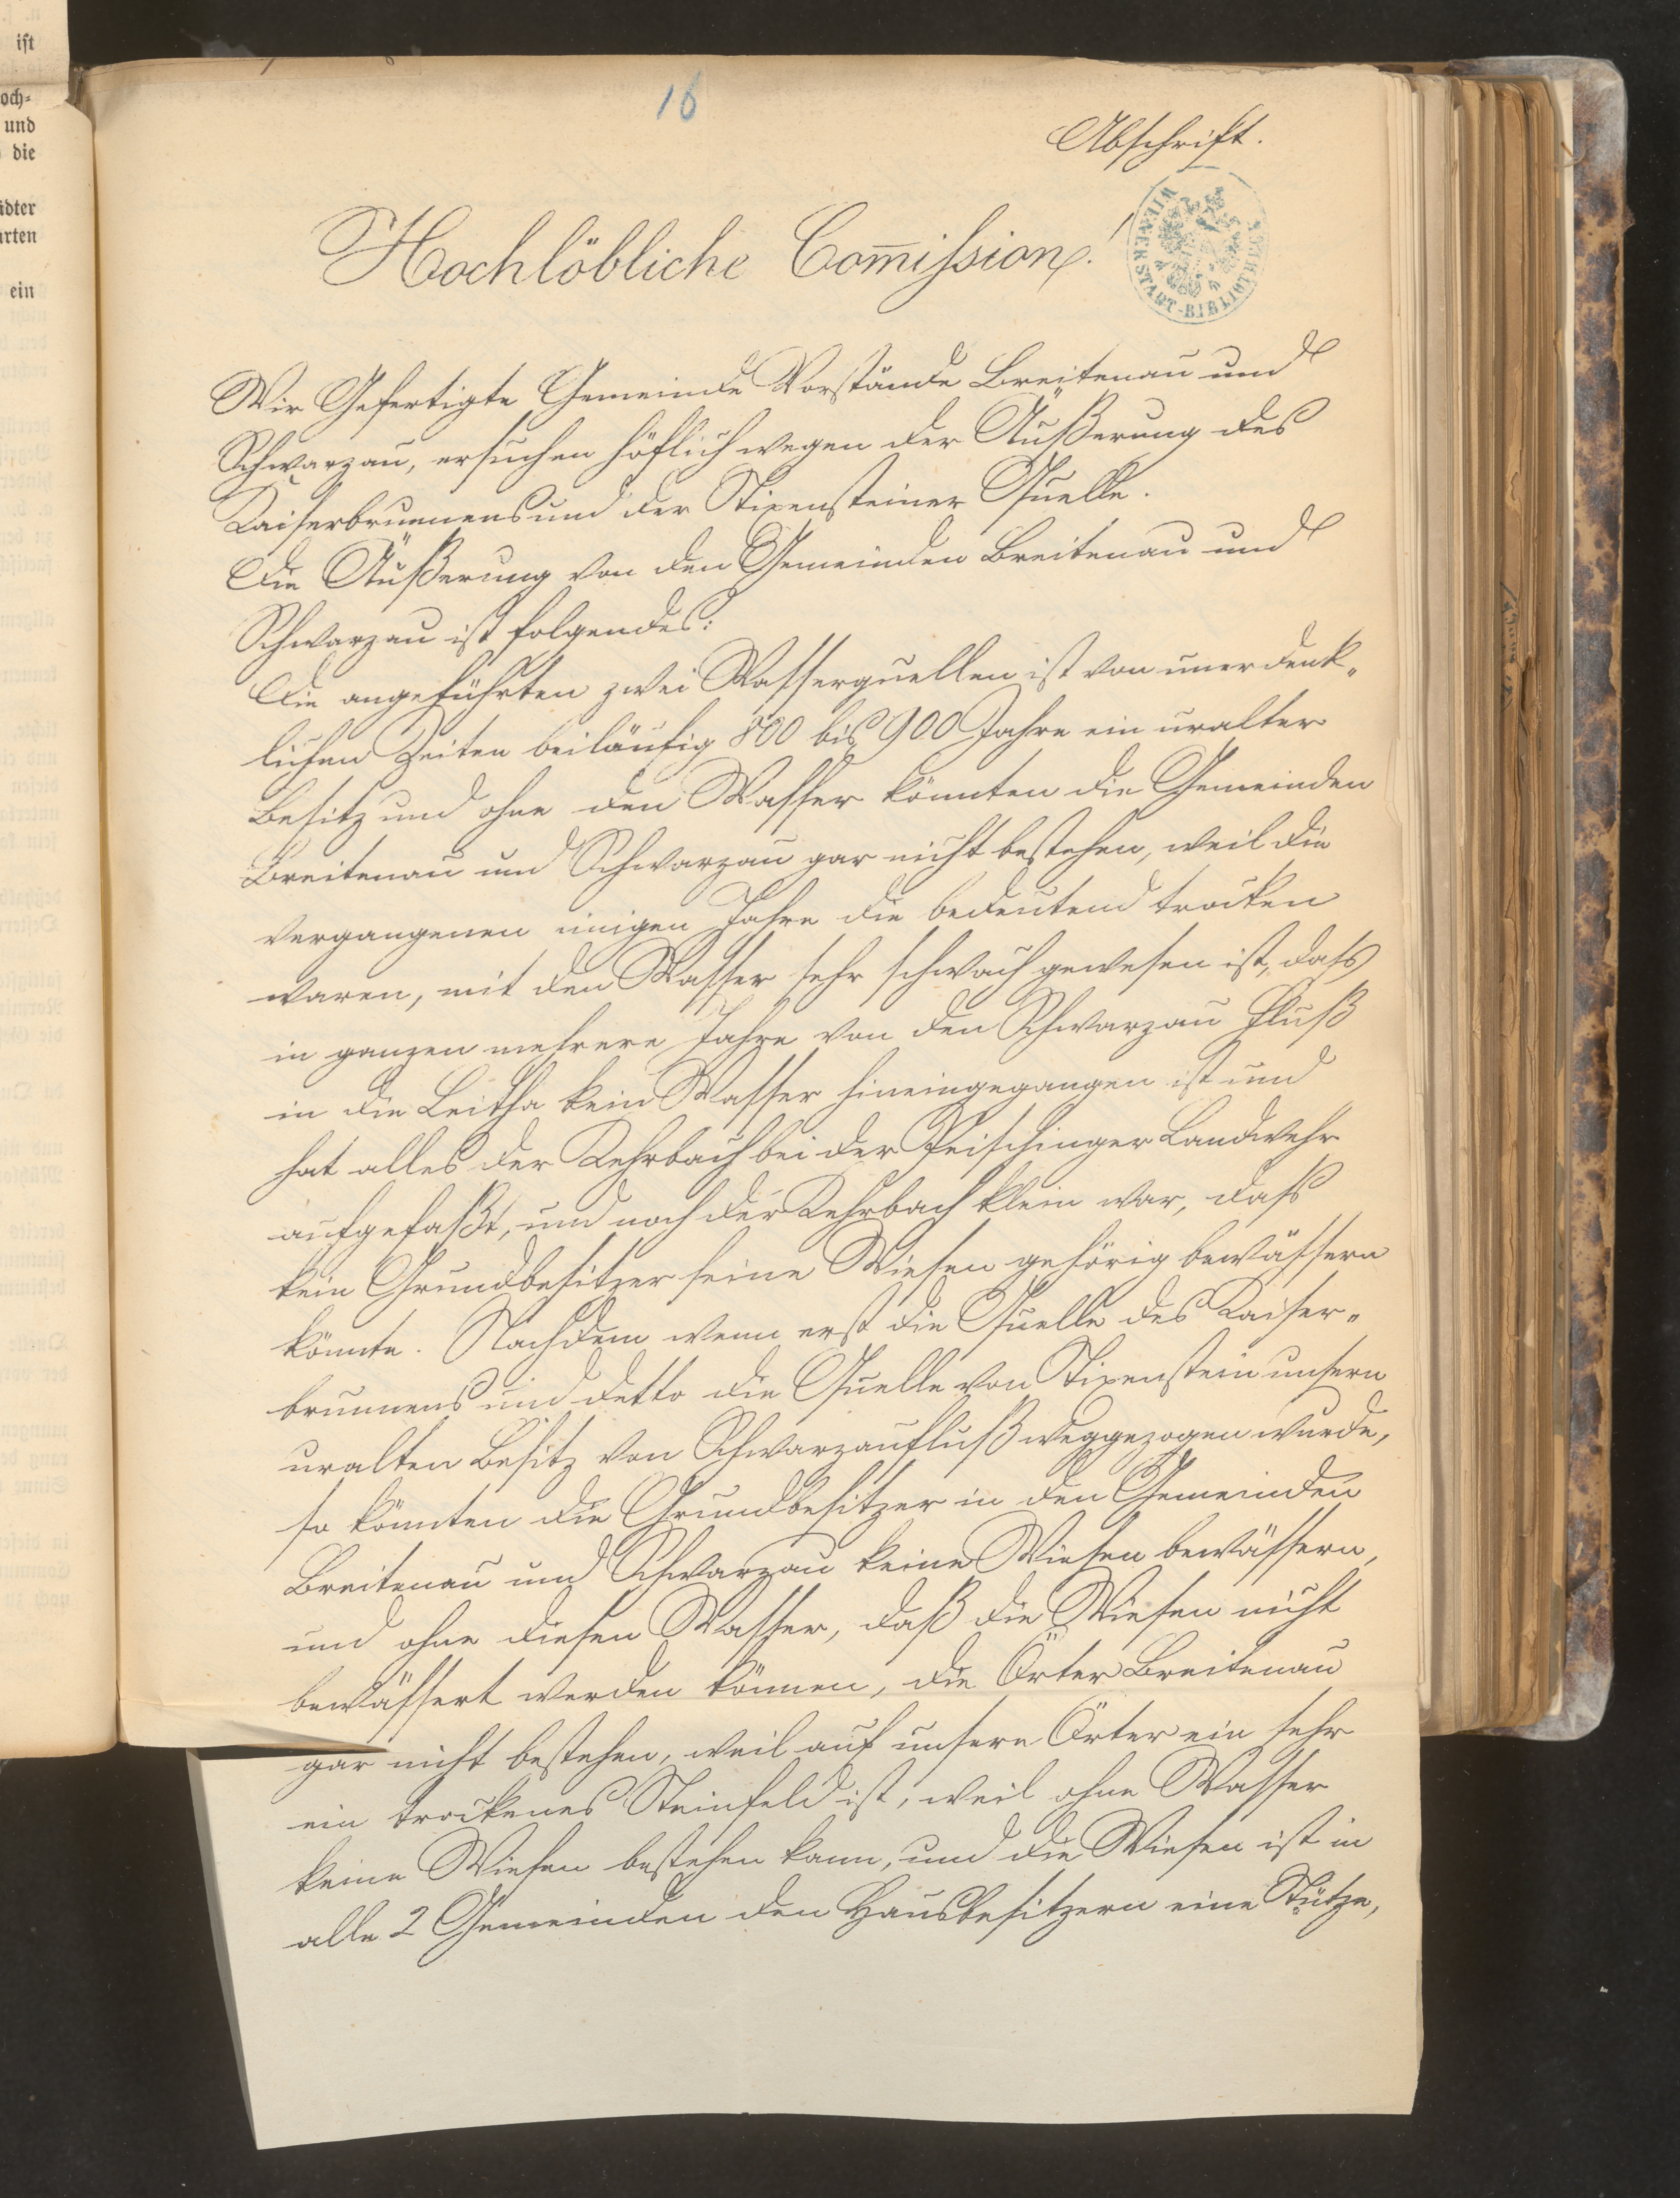 ist
och-
und
die
ädter
arten
ein
16
Abschrift.
WIENER STADT-BIBLIOTHEK
Hochlöbliche Com̄ission!
Wir Gefertigte Gemeinde Vorstände Breitenau und
Schwarzau, ersuchen höflich wegen der Äußerung des
Kaiserbrunnens und der Stixensteiner Quelle.
Die Äußerung von den Gemeinden Breitenau und
Schwarzau ist folgendes:
Die angeführten zwei Wasserquellen ist von unerdenk-
lichen Zeiten beiläufig 800 bis 900 Jahre ein uralter
Besitz und ohne den Wasser könnten die Gemeinden
Breitenau und Schwarzau gar nicht bestehen, weil die
vergangenen einigen Jahre die bedeutend trocken
waren, mit den Wasser sehr schwach gewesen ist, dass
in ganzen mehrere Jahre von den Schwarzau Fluß
in die Leitha kein Wasser hineingegangen ist und
hat alles der Kehrbach bei der Peischinger Landwehr
aufgefaßt, und noch der Kehrbach klein war, dass
kein Grundbesitzer seine Wiesen gehörig bewässern
könnte. Nachdem wenn erst die Quelle des Kaiser-
brunnens und detto die Quelle von Stixenstein unsern
uralten Besitz von Schwarzaufluß weggezogen wurde,
so könnten die Grundbesitzer in den Gemeinden
Breitenau und Schwarzau keine Wiesen bewässern,
und ohne diesen Wasser, daß die Wiesen nicht
bewässert werden können, die Örter Breitenau
gar nicht bestehen, weil auf unsere Örter ein sehr
ein trockenes Steinfeld ist, weil ohne Wasser
keine Wiesen bestehen kann, und die Wiesen ist in
alle 2 Gemeinden den Hausbesitzern eine Stütze,